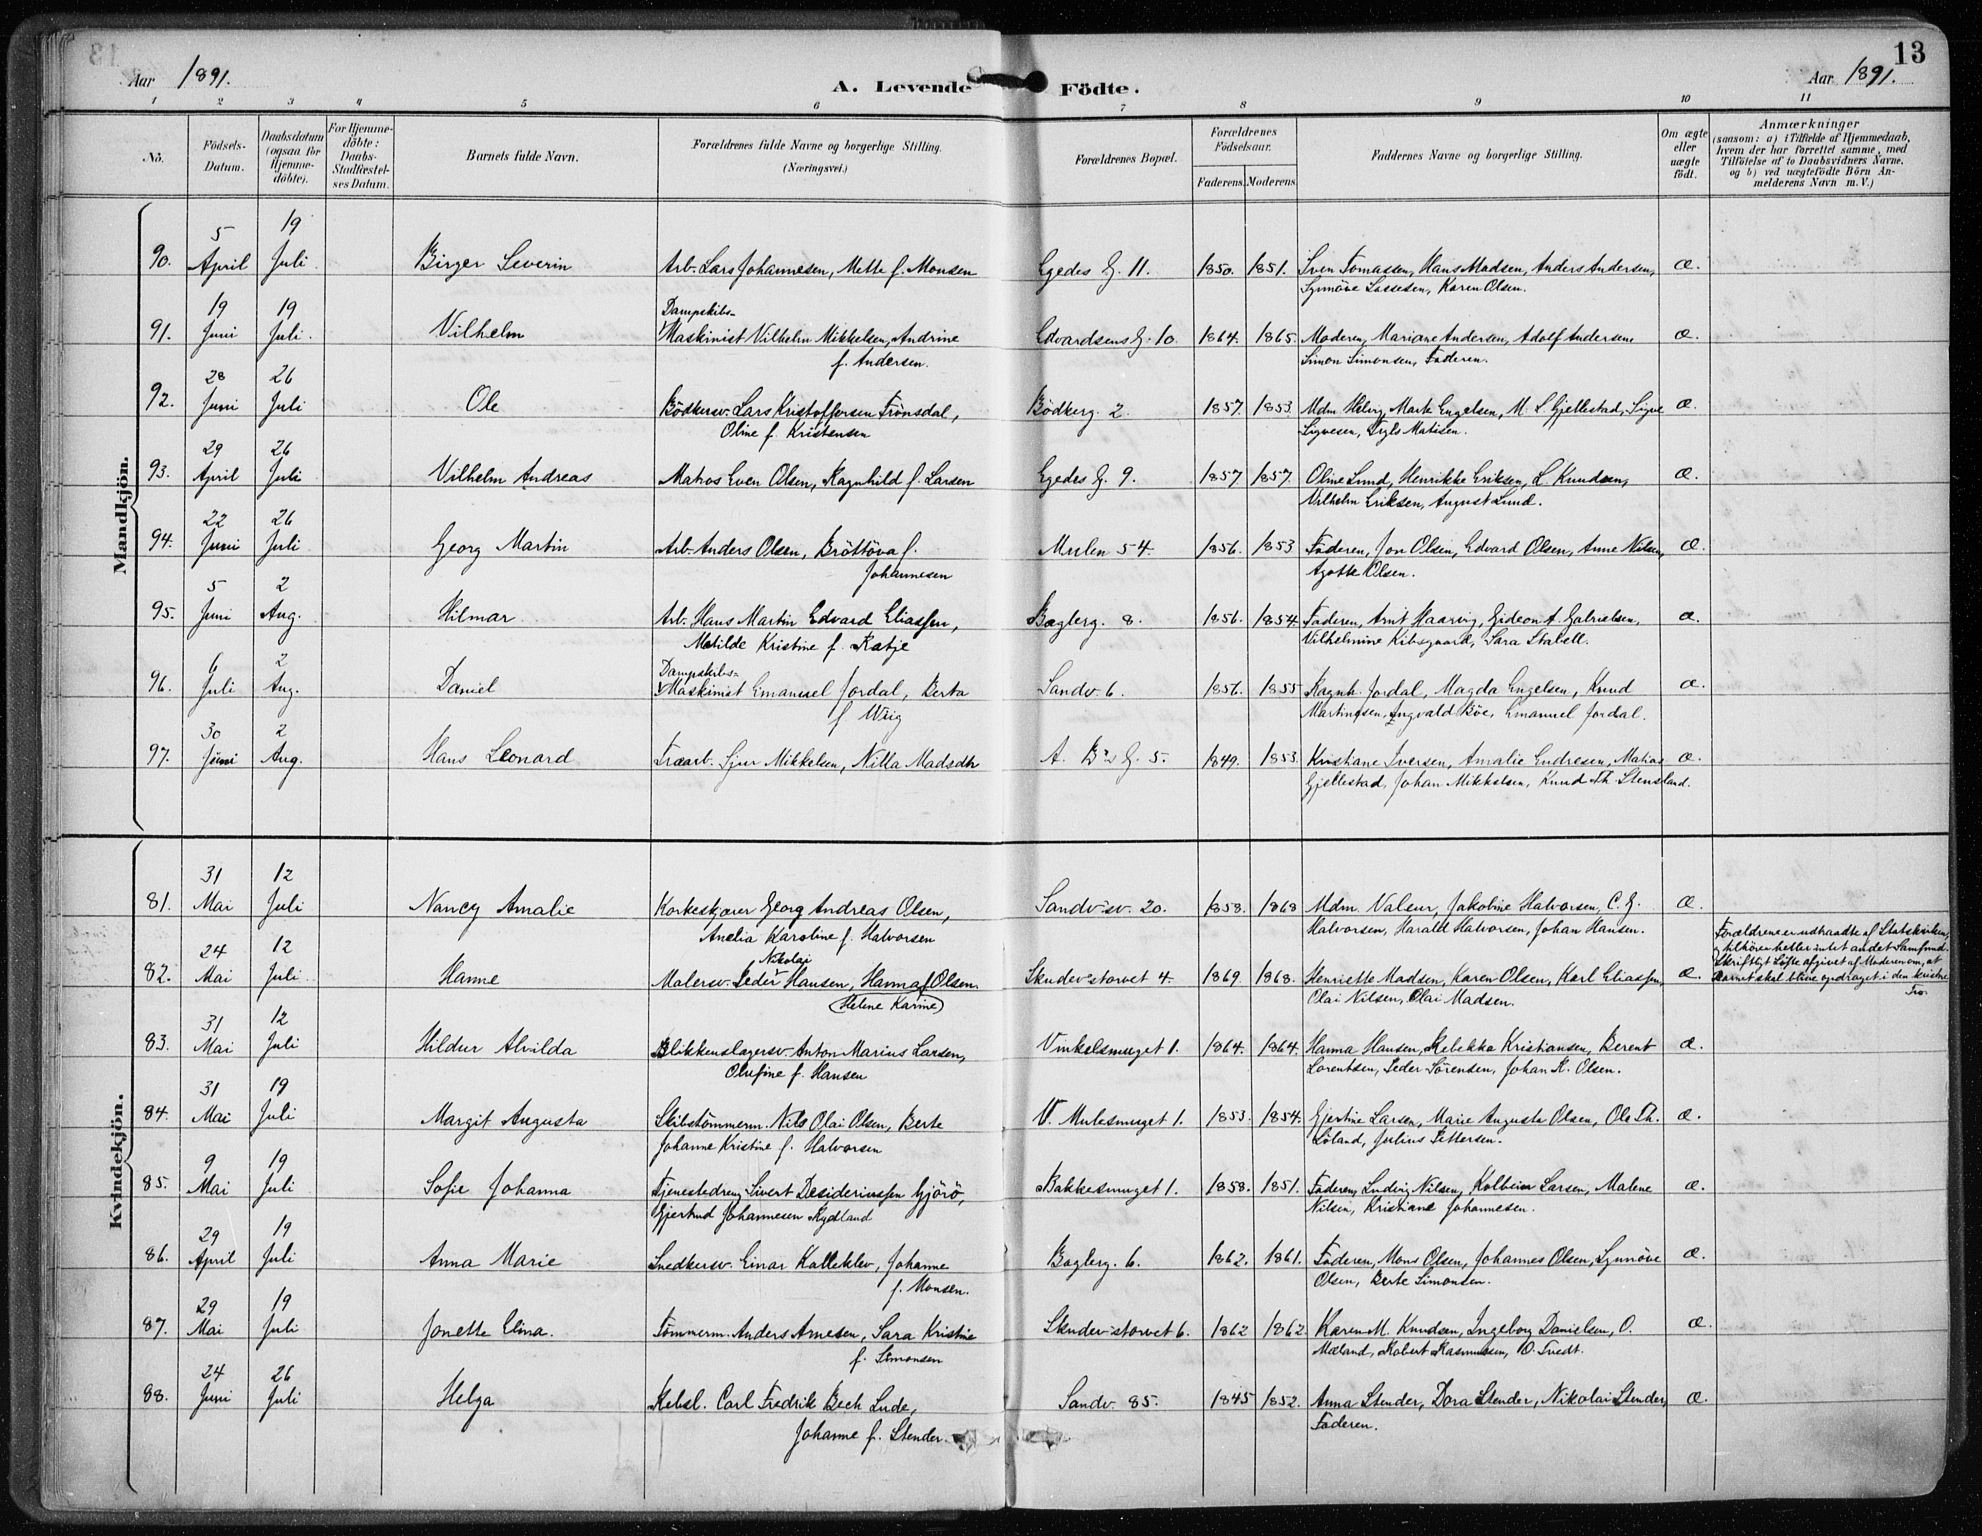 13
Aar 1891.
A. Levende Födte.
Aar 1891.
1 2 3 4 5 6 7 8 9 10 11
No. Födsels-Datum. Daabsdatum (ogsaa for Hjemme-döbte). For Hjemme-döbte: Daabs-Stadfæstel-ses Datum. Barnets fulde Navn. Forældrenes fulde Navne og borgerlige Stilling. (Næringsvei.) Forældrenes Bopæl. Forældrenes Födselsaar. Faderens. Moderens. Faddernes Navne og borgerlige Stilling. Om ægte eller uægte födt. Anmærkninger (saasom: a) i Tilfælde af Hjemmedaab, hvem der har forrettet samme, med Tilföielse af to Daabsvidners Navne, og b) ved uægtefödte Börn An-melderens Navn m. V.)
Mandkjön.
90. 5 April 19 Juli Birger Severin Arb. Lars Johannesen, Mette f. Monsen Egedes G. 11. 1850. 1851. Sven Tomassen, Hans Madsen, Anders Andersen, Æ.
Synnöve Lassesen, Karen Olsen.
91. 19 Juni 19 Juli Vilhelm Dampskibs-Maskinist Vilhelm Mikkelsen, Andrine Edvardsens G. 10. 1864. 1865. Moderen, Mariane Andersen, Adolf Andersen Æ.
f. Andersen. Simon Simonsen, Faderen.
92. 28 Juni 26 Juli Ole Bödkersv. Lars Kristoffersen Frönsdal, Bödkerg. 2. 1857. 1853. Mdm Helvig, Marte Engelsen, M. L. Gjellestad, Sigve Æ.
Oline f. Kristensen Sigvesen, Matisen.
93. 29 April 26 Juli Vilhelm Andreas Matros Even Olsen, Ragnhild f. Larsen Egedes G. 9. 1857 1857. Oline Lund, Henrikke Eriksen, L. Knudsen, Æ.
Vilhelm Eriksen, August Lund.
94. 22 Juni 26 Juli Georg Martin Arb. Anders Olsen, Bröttöva f. Mulen 54. 1856. 1853 Faderen, Jon Olsen, Edvard Olsen, Anne Nilsen, Æ.
Johannesen Agotte Olsen.
95. 5 Juni 2 Aug. Hilmar Arb. Hans Martin Edvard Eliassen, Baglerg. 8. 1856. 1854. Faderen, Arnt Haarvig, Gideon A. Gabrielsen, Æ.
Matilde Kristine f. Katje Vilhelmine Kibsgaard, Sara Stabell.
96. 6 Juli 2 Aug. Daniel Dampskibs-Maskinist Emanuel Jordal, Berta Sandv. 6. 1856. 1855 Ragnh. Jordal, Magda Engelsen, Knud Æ.
f. Wiig Martinusen, Ingvald Böe, Emanuel Jordal.
97. 30 Juni 2 Aug. Hans Leonard Træarb. Sjur Mikkelsen, Nilla Madsdtr A. B's G. 5. 1849. 1853. Kristiane Iversen, Amalie Endresen, Matias Æ.
Gjellestad, Johan Mikkelsen, Knud Th. Stensland.
Kvindekjön.
81. 31 Mai 12 Juli Nancy Amalie Korkeskjærer Georg Andreas Olsen, Sandv.sv. 20. 1858. 1868 Mdm. Valeur, Jakobine Halvorsen, C. G. Æ.
Anelia Karoline f. Halvorsen Halvorsen, Harald Halvorsen, Johan Hansen.
82. 24 Mai 12 Juli Hanne Malersv. Peder Nikolai Hansen, Hanna f. Olsen. Skudev.storvet 4. 1869. 1868. Henriette Madsen, Karen Olsen, Karl Eliassen, Æ.
(Helene Karine) Olai Nilsen, Olai Madsen.
Forældrene er udtraadte af Statskirken,
og tilhörer heller intet andet Samfund.
Skriftligt Löfte afgivet af Moderen om, at
Barnet skal blive opdraget i den kristne
Tro.
83. 31 Mai 12 Juli Hildur Alvilda Blikkenslagersv. Anton Marius Larsen, Vinkelsmuget 1. 1864. 1864. Hanna Hansen, Rebekka Kristiansen, Berent Æ.
Olufine f. Hansen Lorentsen, Peder Sörensen, Johan K. Olsen.
84. 31 Mai 19 Juli Margit Augusta Skibstömmerm. Nils Olai Olsen, Berte V. Mulesmuget 1. 1853. 1854. Gjertine Larsen, Marie Augusta Olsen, Ole Th. Æ.
Johanne Kristine f. Halvorsen Löland, Julius Pettersen.
85. 9 Mai 19 Juli Sofie Johanna Tjenestedreng Sivert Desideriussen Gjörö, Bakkesmuget 1. 1858. 1851. Faderen, Ludvig Nilsen, Kolbein Larsen, Malene Æ.
Gjertrud Johannesen Rydland Nilsen, Kristiane Johannesen.
86. 29 April 19 Juli Anna Marie Snedkersv. Einar Kalleklev, Johanne Baglerg. 6. 1862. 1861. Faderen, Mons Olsen, Johannes Olsen, Synnöve Æ.
f. Monsen. Olsen, Berte Simonsen.
87. 29 Mai 19 Juli Jonette Elina. Tömmerm. Anders Arnesen, Sara Kristine Skudev.storvet 6. 1862 1862. Karen M. Knudsen, Ingeborg Danielsen, O. Æ.
f. Simonsen Mæland, Robert Rasmussen, O. Tvedt.
88. 24 Juni 26 Juli Helga Rebsl. Carl Fredrik Bech Lude, Sandv. 85. 1845 1852. Anna Stender, Dora Stender, Nikolai Stender, Æ.
Johanne f. Stender. Faderen.